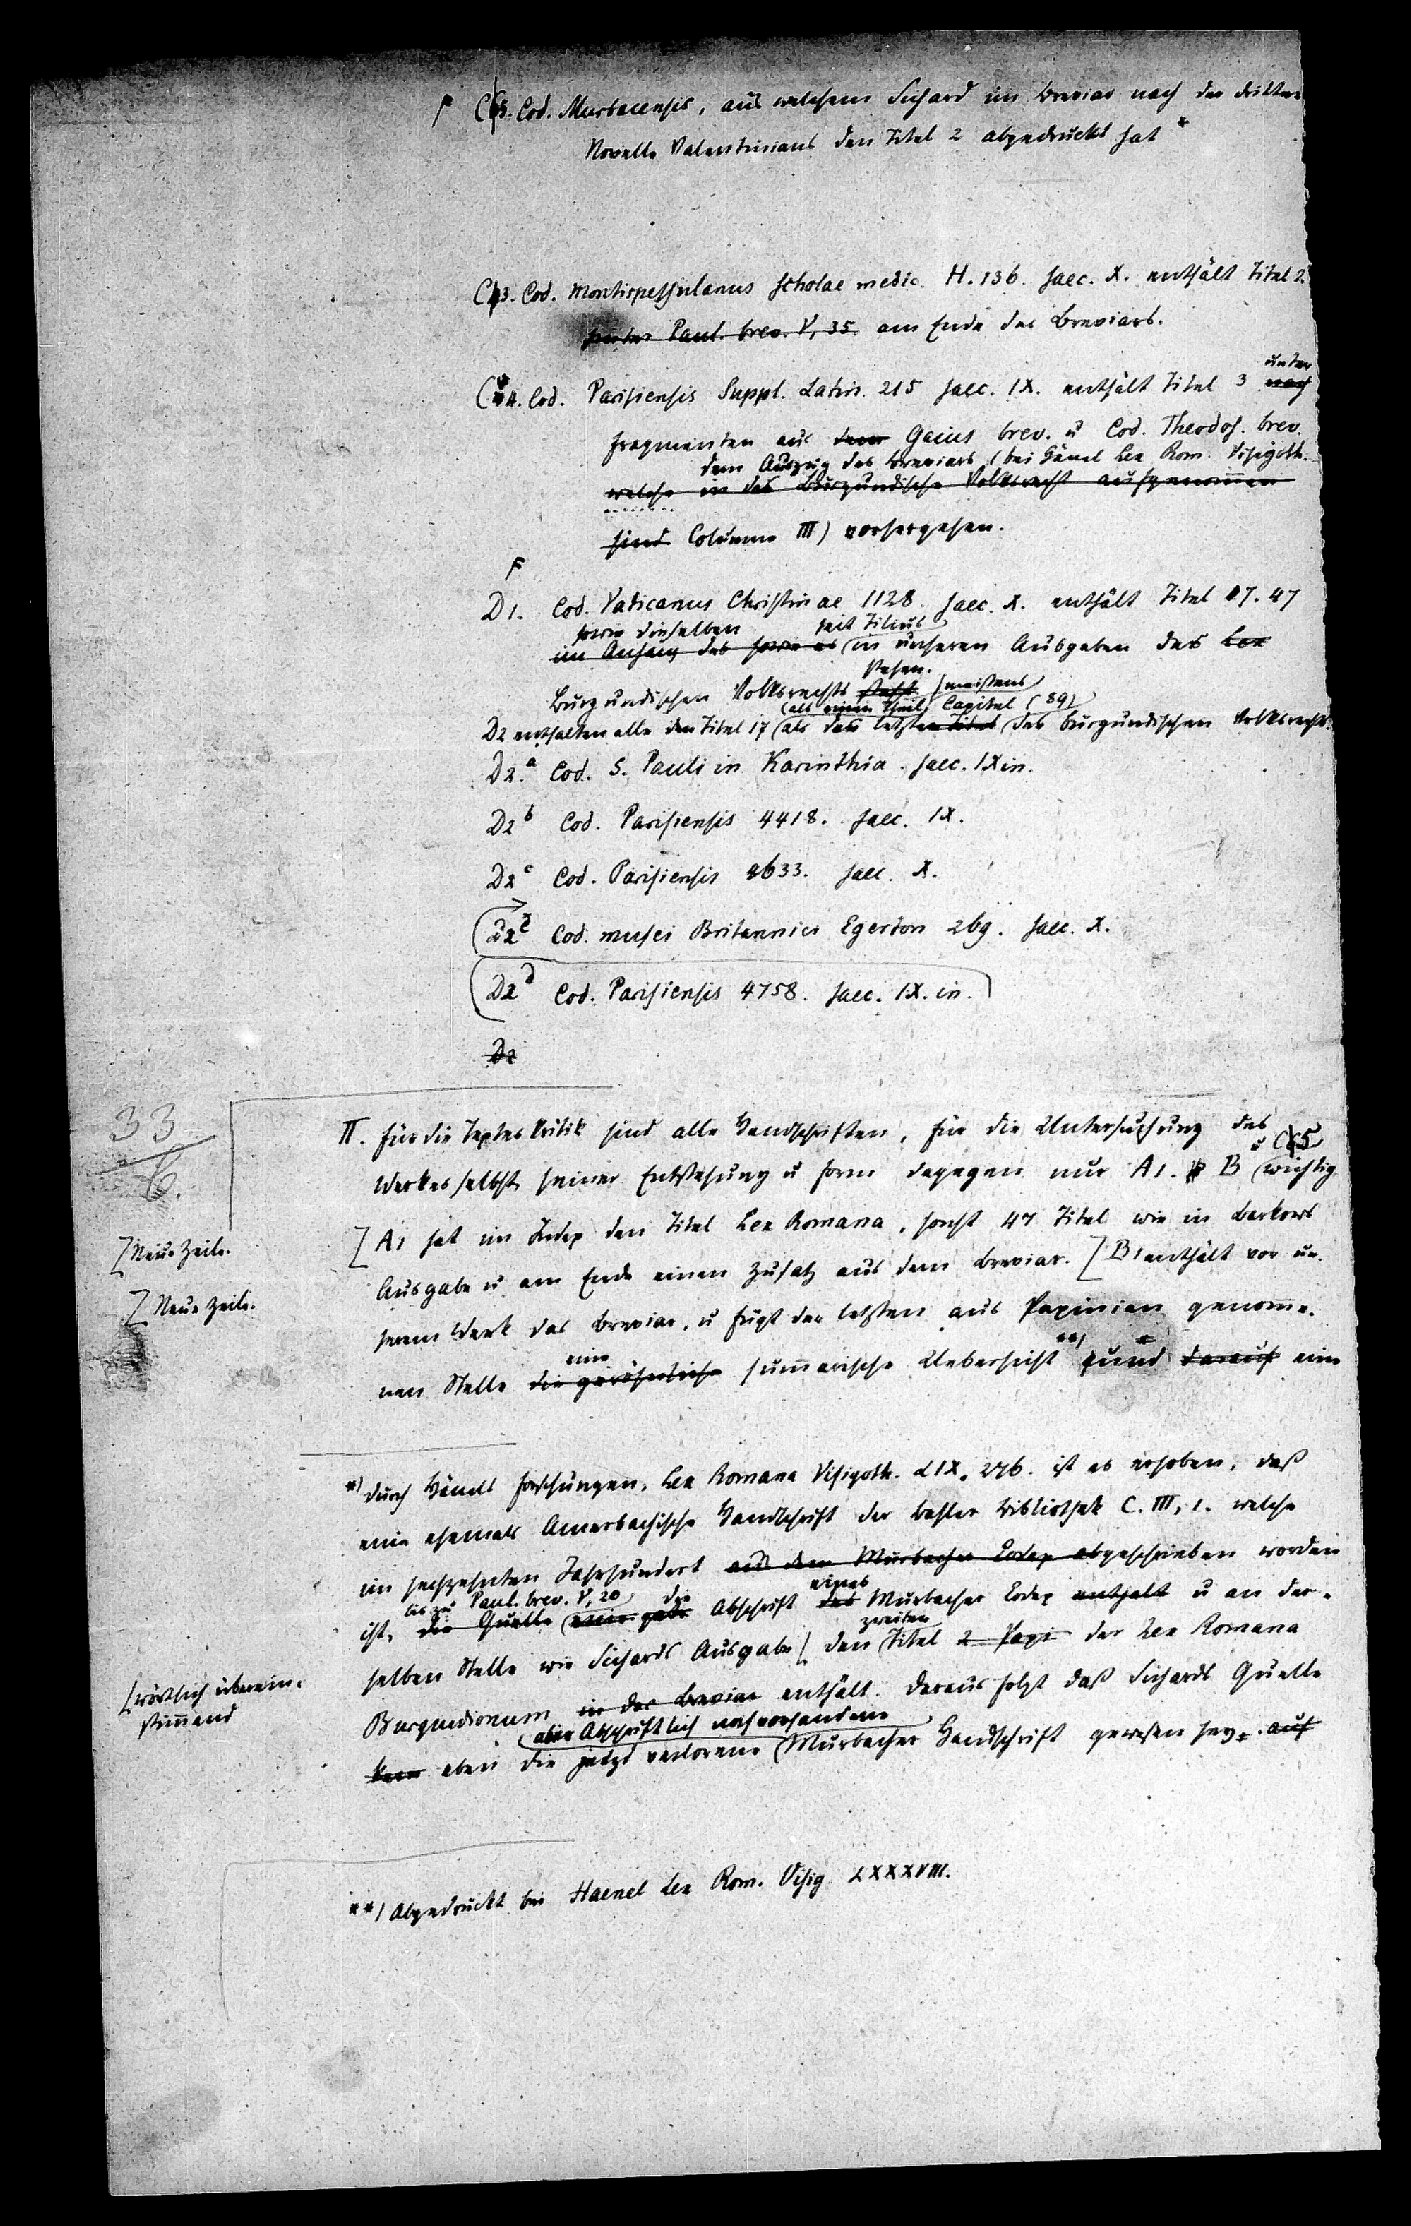 Cod. Murbacensis, aus welchem Sichard im Breviar nach der dritten
Novelle Valentinians den Titel 2 abgedruckt hat *
C 3. Cod. Montispessulanus scholae medic. H. 136. saec. X. enthält Titel 2.
hinter Paul. brev. V, 35. am Ende des Breviars.
C 4. Cod. Parisiensis Suppl. Latin. 215 saec. IX. enthält Titel 3 nach
unter
Fragmenten aus dem Gaius brev. u Cod. Theodos. brev.
dem Auszug des Breviars (bei Hänel Lex Rom. Visigoth.
welche in das Burgundische Volksrecht aufgenommen
sind Columne III) vorhergehen.
D1. Cod. Vaticanus Christinae 1128. saec. X. enthält Titel 17. 47
sowie dieselben seit Tilius
im Anhang des sowie es in unseren Ausgaben des Lex
stehen.
Burgundischen Volksrechts steht meistens
(als einen Theil) Capitel (89)
D2 enthalten alle den Titel 17 als das letzten Titel des burgundischen Volksrechts.
D2.a Cod. S. Pauli in Karinthia. saec. IX in.
D2 b Cod. Parisiensis 4418. saec. IX.
D2 c Cod. Parisiensis 4633. saec. X.
D2 Cod. musei Britannici Egerton 269. saec. X.
D2 d Cod. Parisiensis 4758. saec. IX. in.
D2
33
6.
II. Für die Texteskritik sind alle Handschriften, für die Untersuchung des
u C 5
Werkes selbst seiner Entstehung u Form dagegen nur A1. B wichtig
[Neue Zeile.
[A1 hat im Index den Titel Lex Romana, sonst 47 Titel wie in Barkows
Ausgabe u am Ende einen Zusatz aus dem Breviar. [B1 enthält vor un-
[Neue Zeile.
serem Werk das Breviar, u fügt der letzten aus Papinian genomme-
eine
nen Stelle die gewöhnliche summarische Uebersicht **) und darauf eine
*) Durch Hänels Forschungen, Lex Romana Visigoth. LIX, 276. ist es erhoben, daß
eine ehemals Amerbachische Handschrift der Basler Bibliothek C. III, 1. welche
im sechzehnten Jahrhundert aus dem Murbacher Codex abgeschrieben worden
bis zu Paul. brev. V, 20 die eines
ist, die Quelle Abschrift des Murbacher Codex enthalt u an der-
zweiten
selben Stelle wie Sichards Ausgabe [den Titel 2 Papi der Lex Romana
[wörtlich überein-
stimmend
Burgundionum in der Breviar enthält. Daraus folgt daß Sichards Quelle
aber Abschriftlich noch vorhandene
kein eben die jetzt verlorene Murbacher Handschrift gewesen sey. auf
**) Abgedruckt bei Haenel Lex Rom. Visig. LXXXVIII.